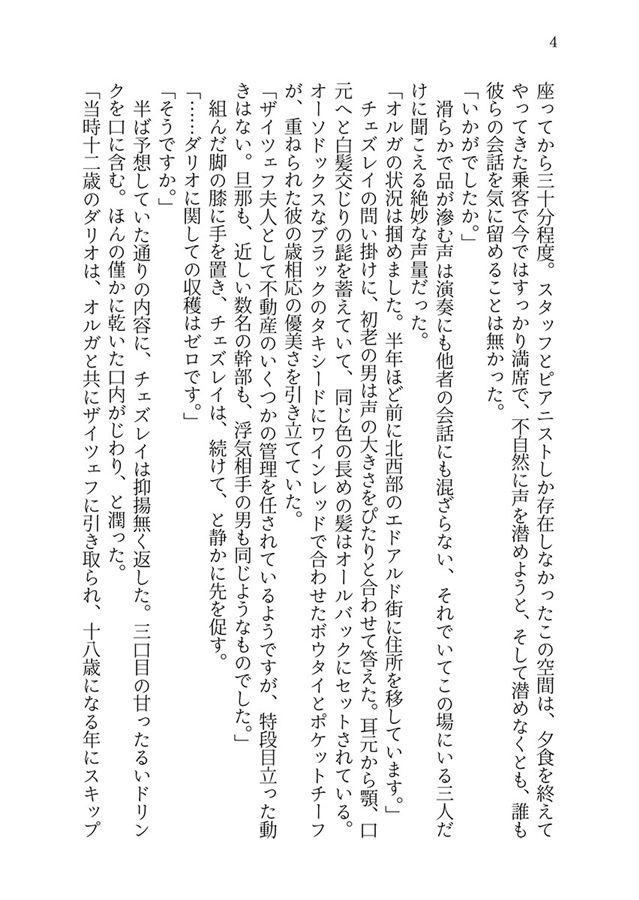 4
座ってから三十分程度。スタッフとピアニストしか存在しなかったこの空間は、夕食を終えて
やってきた乗客で今ではすっかり満席で、不自然に声を潜めようと、そして潜めなくとも、誰も
彼らの会話を気に留めることは無かった。
「いかがでしたか。」
滑らかで品が滲む声は演奏にも他者の会話にも混ざらない、それでいてこの場にいる三人だ
けに聞こえる絶妙な声量だった。
「オルガの状況は掴めました。半年ほど前に北西部のエドアルド街に住所を移しています。」
チェズレイの問い掛けに、初老の男は声の大きさをぴたりと合わせて答えた。耳元から顎、口
元へと白髪交じりの髭を蓄えていて、同じ色の長めの髪はオールバックにセットされている。
オーソドックスなブラックのタキシードにワインレッドで合わせたボウタイとポケットチーフ
が、重ねられた彼の歳相応の優美さを引き立てていた。
「ザイツェフ夫人として不動産のいくつかの管理を任されているようですが、特段目立った動
きはない。旦那も、近しい数名の幹部も、浮気相手の男も同じようなものでした。」
組んだ脚の膝に手を置き、チェズレイは、続けて、と静かに先を促す。
「……ダリオに関しての収穫はゼロです。」
「そうですか。」
半ば予想していた通りの内容に、チェズレイは抑揚無く返した。三口目の甘ったるいドリン
クを口に含む。ほんの僅かに乾いた口内がじわり、と潤った。
「当時十二歳のダリオは、オルガと共にザイツェフに引き取られ、十八歳になる年にスキップ